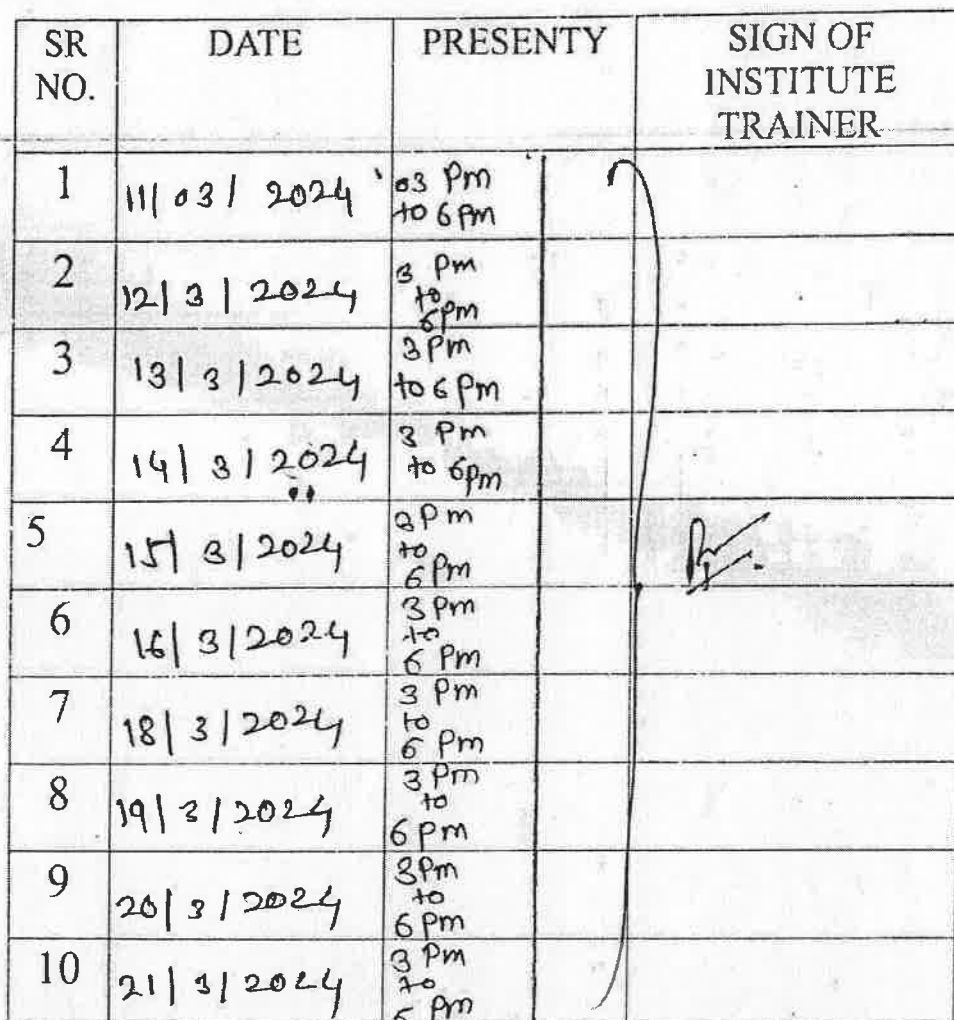 SR NO. DATE PRESENTY SIGN OF INSTITUTE TRAINER
1 11/03/2024 03 Pm to 6 Pm
2 12/3/2024 3 Pm to 6 Pm
3 13/3/2024 3 Pm to 6 Pm
4 14/3/2024 3 Pm to 6 Pm
5 15/3/2024 3 Pm to 6 Pm
6 16/3/2024 3 Pm to 6 Pm
7 18/3/2024 3 Pm to 6 Pm
8 19/3/2024 3 Pm to 6 Pm
9 20/3/2024 3 Pm to 6 Pm
10 21/3/2024 3 Pm to 6 Pm